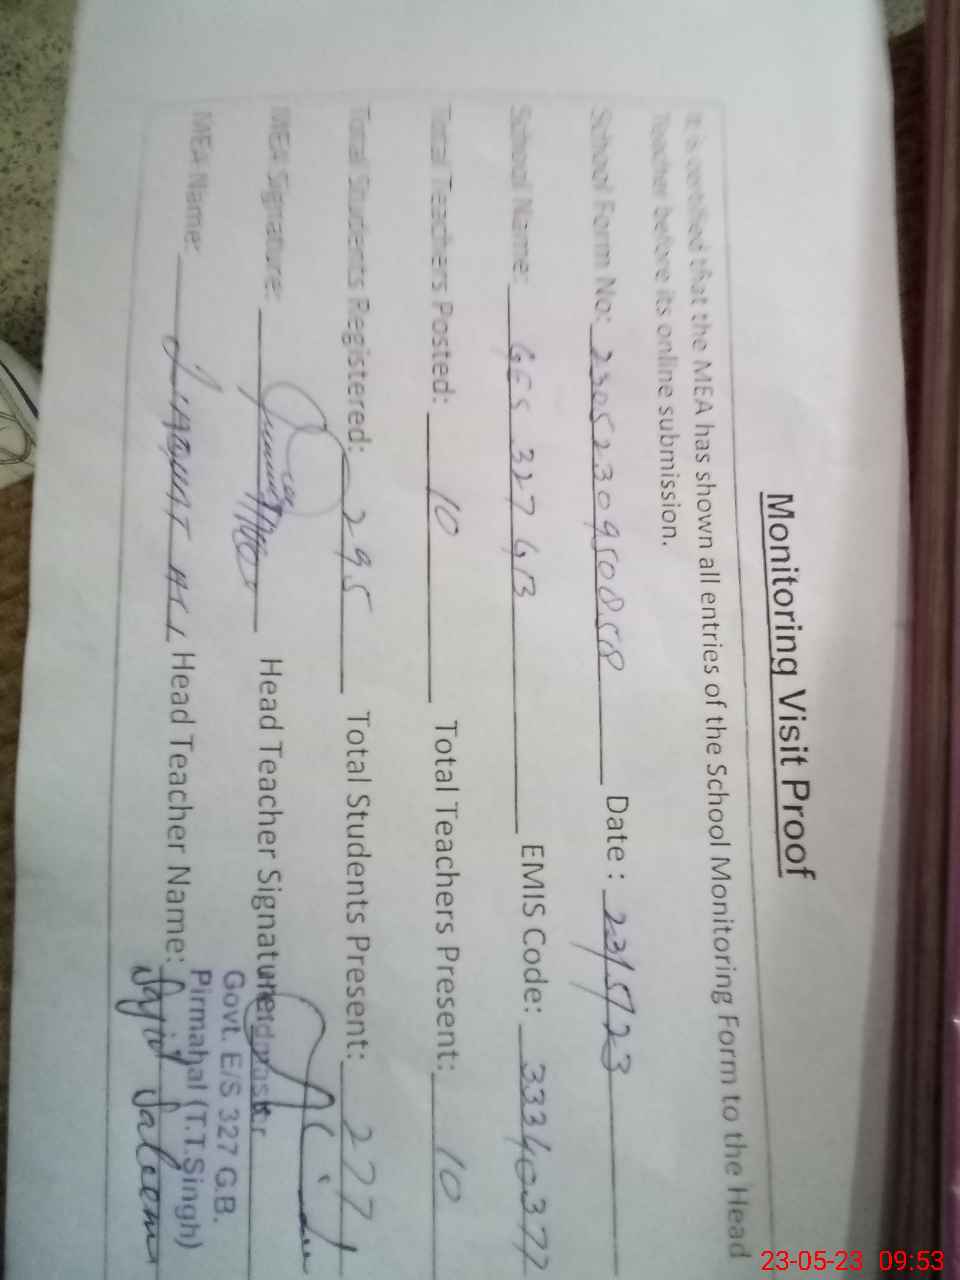 Monitoring Visit Proof
It is certified that the MEA has shown all entries of the School Monitoring Form to the Head
Teacher before its online submission.
School Form No: 2305230950858 Date : 23/5/23
School Name: GES 327 GB EMIS Code: 33340377
Total Teachers Posted: 10 Total Teachers Present: 10
Total Students Registered: 295 Total Students Present: 277
MEA Signature: Head Teacher Signature:
MEA Name: LIAQUAT ALI Head Teacher Name: Sajid Saleem
Headmaster
Govt. E/S 327 G.B.
Pirmahal (T.T.Singh)
23-05-23 09:53